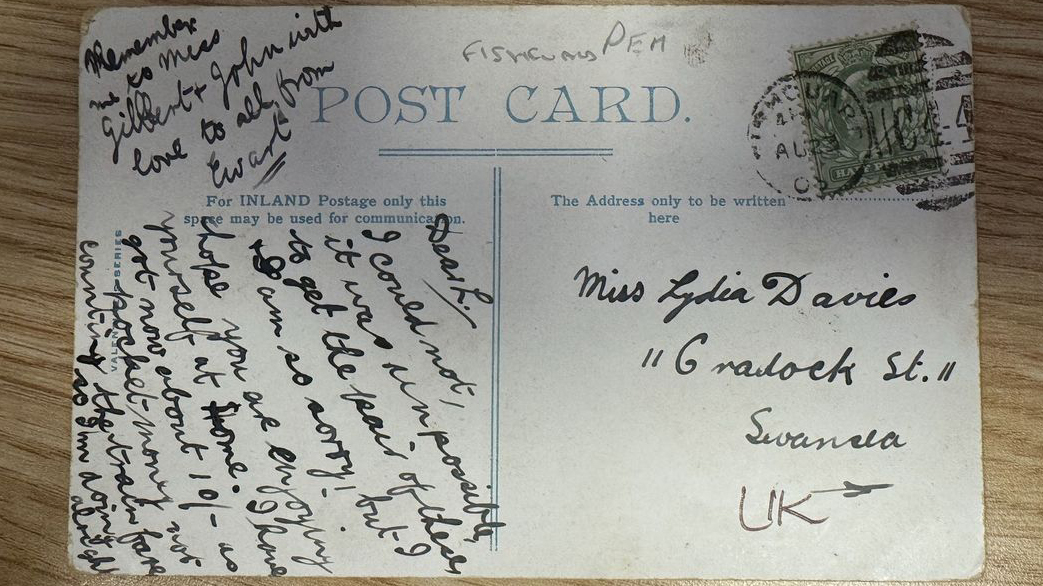 FISHGUARD PEM
POST CARD.
For INLAND Postage only this
space may be used for communication.
The Address only to be written
here
VALENTINES SERIES
Remember
me to Miss
Gilbert & John with
love to all, from
Ewart
Dear L.
I could not,
it was un possible,
to get the pair of these
I am so sorry, but I
hope you are enjoying
yourself at Home. I have
got now about 10/- as
pocket-money not
counting the train fare
so I'm doing
alright
Miss Lydia Davies
"Cradock St."
Swansea
UK
AU 23